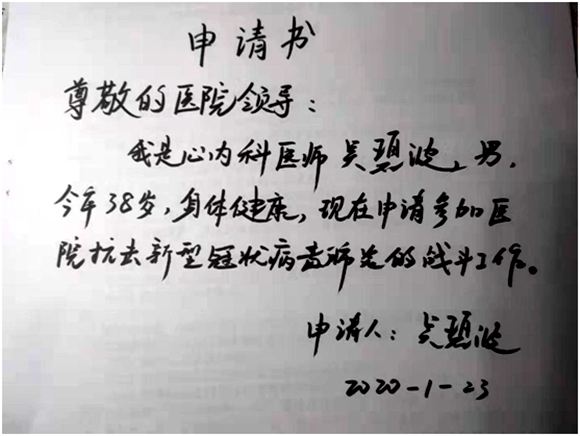 申请书
尊敬的医院领导：
我是心内科医师吴碧波，男，
今年38岁，身体健康，现在申请参加医
院抗击新型冠状病毒肺炎的战斗工作。
申请人：吴碧波
2020-1-23